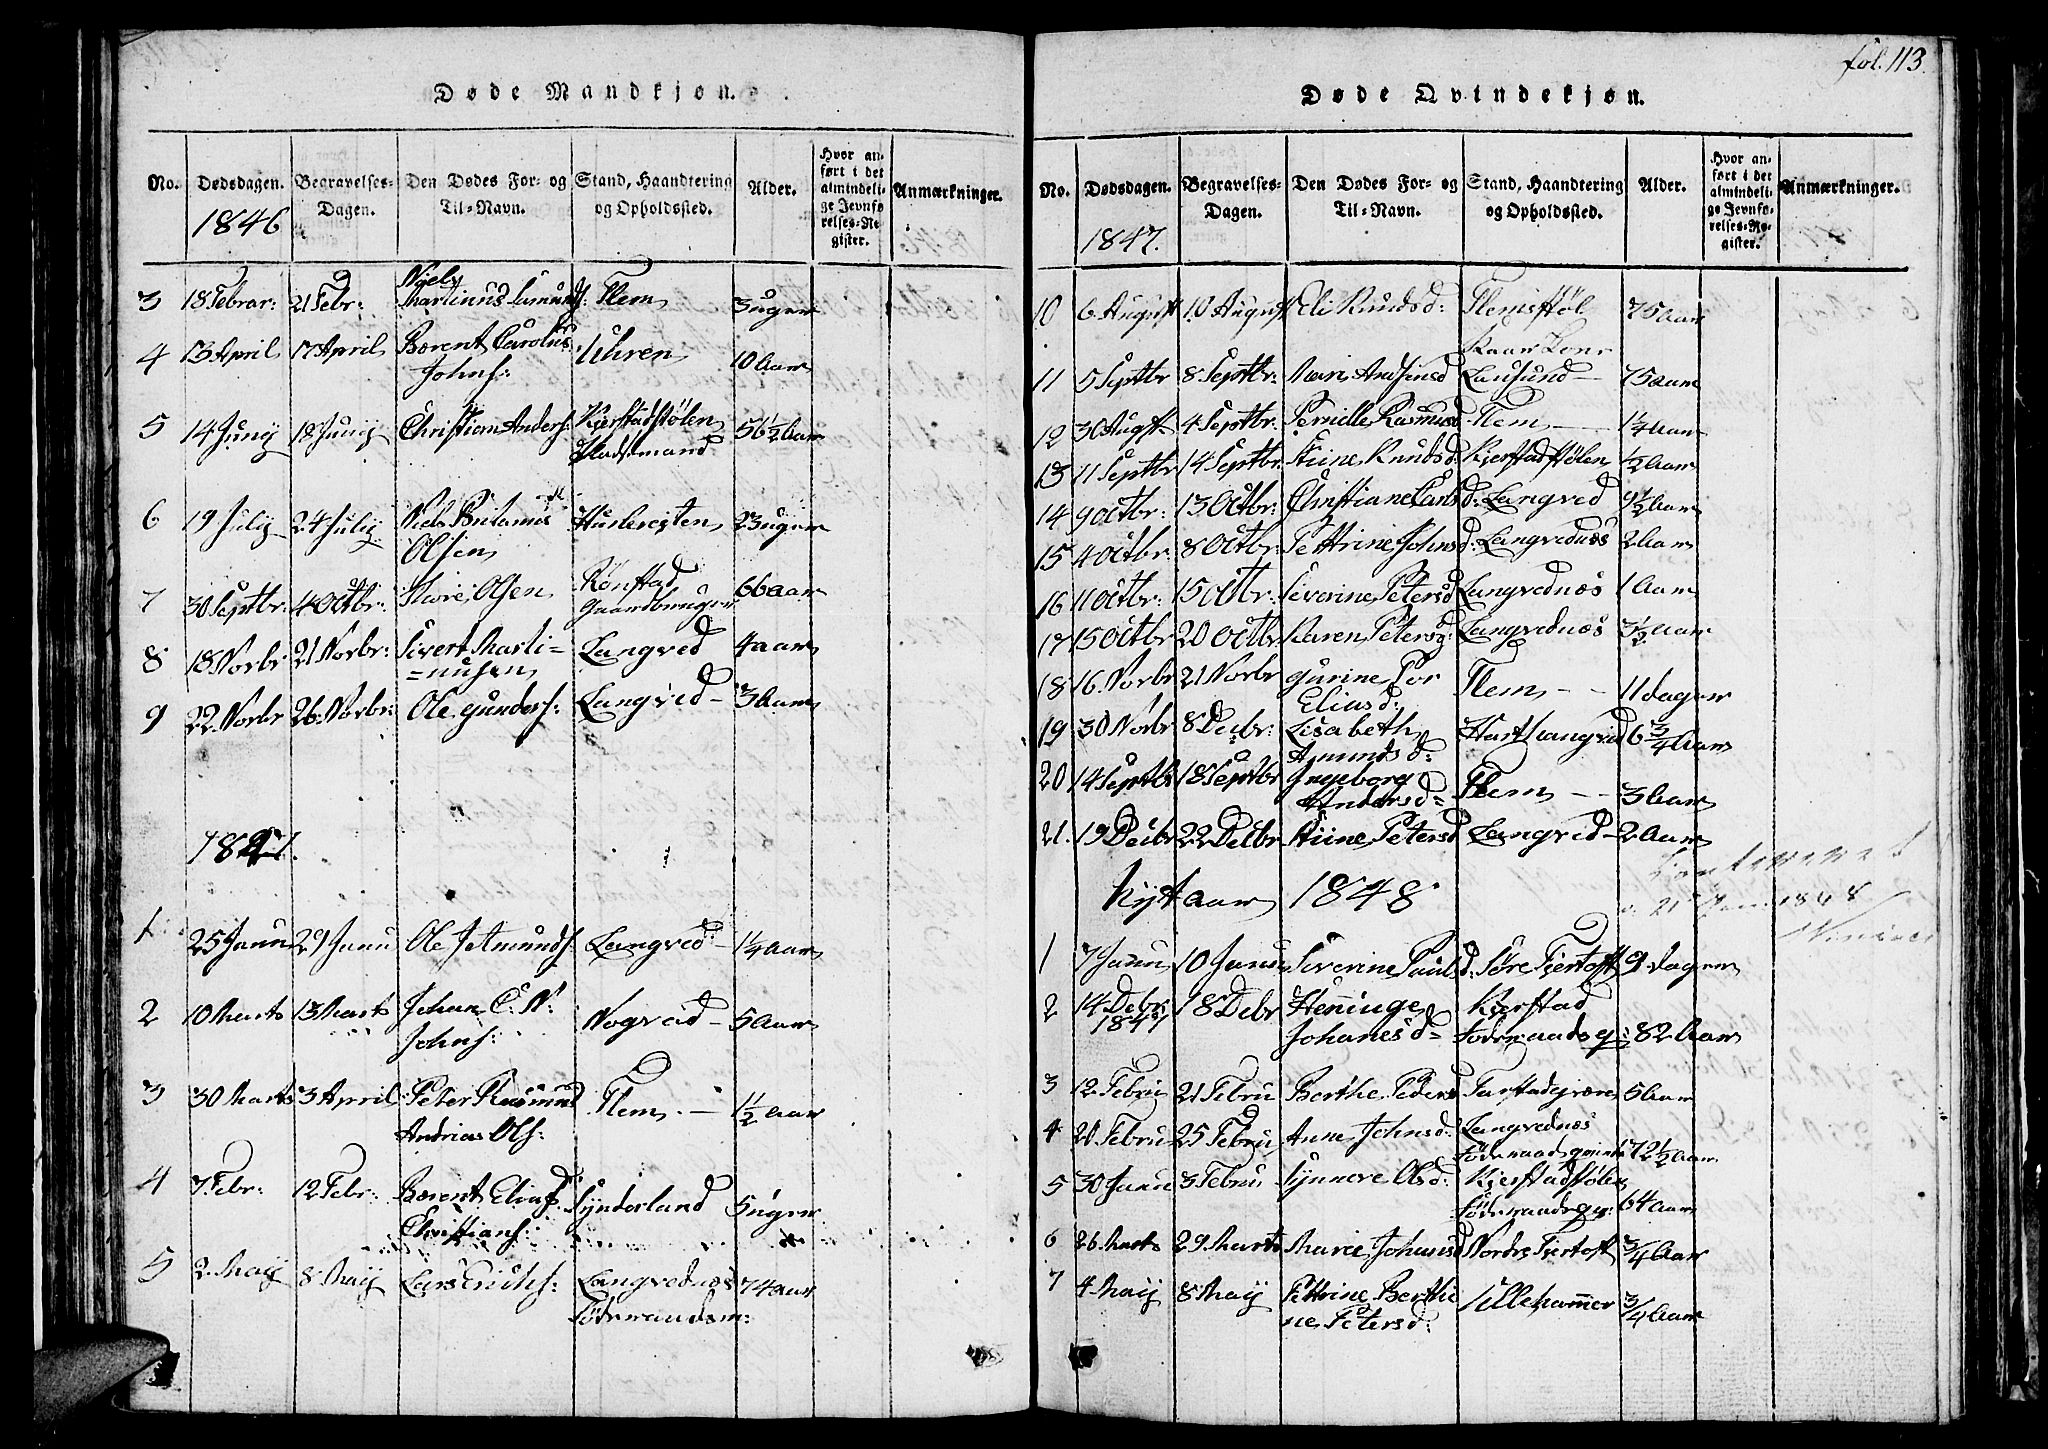 Døde Mandkjøn.
No. Dødsdagen. Begravelses-Dagen. Den Dødes For- og Til-Navn. Stand, Haandtering og Opholdssted. Alder. Hvor anført i det almindelige Jevnførelses-Register. Anmærkninger.
1846
3 18 Febrar: 21 Febr: Niels Martinus Amunds: Flem 3 uger
4 13 April 17 April Bærent Carolus
Johns: Uhren 10 Aar
5 14 Juny 18 Juny Christian Anders: Kjerstadstølen
Pladsmand 56½ Aar
6 19 July 24 July Niels Britanus
Olsen 23 uger
7 30 Septbr: 4 Octbr: Thore Olsen Rønstad
Gaardbruger 66 aar
8 18 Novbr 21 Novbr: Sivert Marti=
=nusen Langved 4 aar
9 22 Novbr 26 Novbr: Ole Gunders: Langved - 3 Aar
1847.
1 25 Janu 29 Janu Ole Jetmunds: Langved - 1¼ Aar
2 10 Marts 13 Marts Johan C: N:
Johns: Nogved - 5 Aar
3 30 Marts 3 April Peter Rasmus
Andrias Ols: Flem - 1½ Aar
4 7 Febr: 12 Febr: Bærent Elias
Christians: Synderland 5 uger
5 2 May 8 May Lars Knuds: Langvednæs
Föderaadsm: 74 aar
fol. 113.
Døde Qvindekjøn.
No. Dødsdagen. Begravelses-Dagen. Den Dødes For- og Til-Navn. Stand, Haandtering og Opholdssted. Alder. Hvor anført i det almindelige Jevnførelses-Register. Anmærkninger.
1847.
10 6 August 10 August Eli Knudsd: Flemstøl 75 Aar
11 5 Septbr 8 Septbr: Maris
Lausund - 75 aar
12 30 Augst. 4 Septbr: Pernille Rasmusd Flem - 1¼ Aar
13 11 Septbr 14 Septbr: Stine Knudsd: Kjerstadstølen ½ Aar
14 9 Octbr: 13 Octbr: Christiane Larsd: Langved 9½ Aar
15 4 Octbr: 8 Octbr: Pettrine Johnsd: Langvednæs 2 Aar
16 11 Octbr: 15 Octbr: Severine Petersd Langvednæs 1 Aar
17 15 Octbr 20 Octbr Karen Petersd: Langvednæs 3½ Aar
18 16 Novbr 21 Novbr Gurine Per
Eliasd: Flem - - 11 dager
19 30 Novbr 8 Decbr: Lisabeth
Amundsd: 6¾ Aar
20 14 Septbr 18 Septbr Ingeborg
Andersd= Flem - - 3 Aar
21. 19 Decbr 22 Decbr Stine Petersd Langved - 2 Aar
21 Jan: 1848
Nyt aar 1848
1 7 Janu 10 Janu Severine Paulsd: Søre Fjertoft 9 dager
2 14 Debr 1847 18 Debr Henninge
Johanesd= Kjerstad
Foderaadsq: 82 Aar
3 12 Febru 21 Febru Berthe Peders 5 Aar
4 20 Febru 25 Febru Anne Johnsd: Langvednæs
72½ Aar
5 30 Janu 3 Febru Synneve Olsd: Kjerstadstølen
Föderaadsqv: 64 Aar
6 26 Marts 29 Marts Maree Johansd Nordre Fjertoft ¾ Aar
7 4 May 8 May Pettrine Berthi
ne Petersd: Ullehammer ¾ Aar